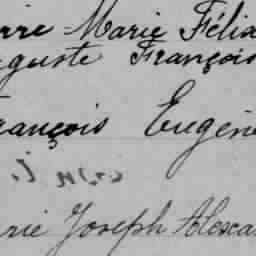 erre Marie Félix
uguste François
rançois Eugène
rie Joseph Alexa